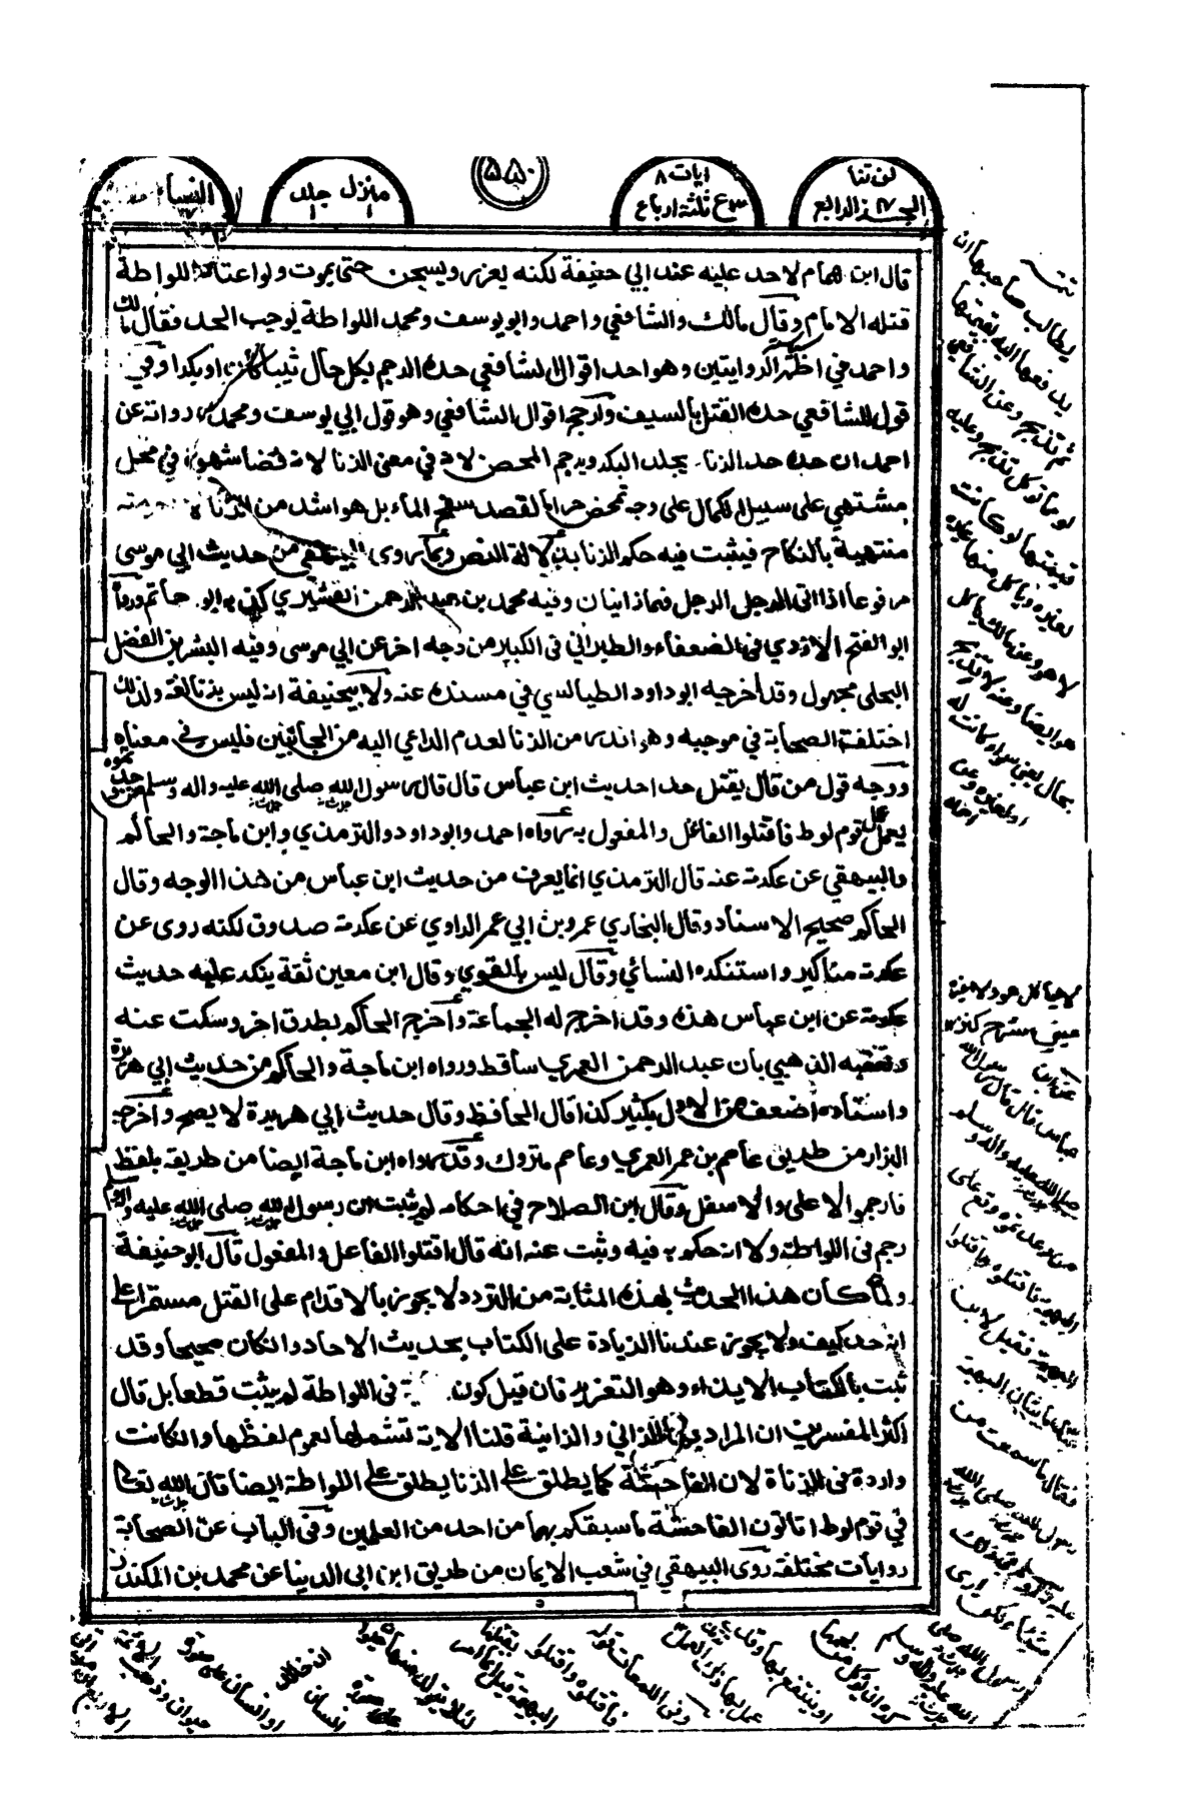 لن تنا
الجزء الرابع
ايات ٨
ع ثلثة ارباع
٥٨٠
منزل ١ جلد ١
النساء
قال ابن همام لا حد عليه عند ابي حنيفة لكنه يعزر ويسجن حتى يموت ولو اعتاد اللواطة
قتله الامام وقال مالك والشافعي واحمد وابو يوسف ومحمد اللواطة يوجب الحد فقال مالك
واحمد في اظهر الروايتين وهو احد اقوال الشافعي حده الرجم بكل حال ثيبا كان او بكرا وفي
قول للشافعي حده القتل بالسيف وارجح اقوال الشافعي وهو قول ابي يوسف ومحمد ورواية عن
احمد ان حده حد الزنا يجلد البكر ويرجم المحصن لانه في معنى الزنا لانه قضاء شهوة في محل
مشتهى على سبيل الكمال على وجه تمحض حراما لقصد سفح الماء بل هو اشد من الزنا لان حرمته
منتهية بالنكاح فيثبت فيه حكم الزنا بدلالة النص وبما روى البيهقي من حديث ابي موسى
مرفوعا اذا اتى الرجل الرجل فهما زانيان وفيه محمد بن عبد الرحمن القشيري كذبه ابو حاتم ورواه
ابو الفتح الازدي في الضعفاء والطبراني في الكبير من وجه اخر عن ابي موسى وفيه البشر بن الفضل
البجلي مجهول وقد اخرجه ابو داود الطيالسي في مسنده عنه ولابيحنيفة انه ليس بزنا لغة ولذلك
اختلفت الصحابة في موجبه وهو اندر من الزنا لعدم الداعي اليه من الجانبين فليس في معناه
ووجه قول من قال يقتل حدا حديث ابن عباس قال قال رسول الله صلى الله عليه واله وسلم من وجدتموه
يعمل عمل قوم لوط فاقتلوا الفاعل والمفعول به رواه احمد وابو داود والترمذي وابن ماجة والحاكم
والبيهقي عن عكرمة عنه قال الترمذي انما يعرف من حديث ابن عباس من هذا الوجه وقال
الحاكم صحيح الاسناد وقال البخاري عمرو بن ابي عمر الراوي عن عكرمة صدوق لكنه روى عن
عكرمة مناكير واستنكره النسائي وقال ليس بالقوي وقال ابن معين ثقة ينكر عليه حديث
عكرمة عن ابن عباس هذه وقد اخرج له الجماعة واخرج الحاكم بطرق اخر وسكت عنه
وتعقبه الذهبي بان عبد الرحمن العمري ساقط ورواه ابن ماجة والحاكم من حديث ابي هريرة
واسناده اضعف من الاول بكثير كذا قال الحافظ وقال حديث ابي هريرة لا يصح واخرجه
البزار من طريق عاصم بن عمر العمري وعاصم متروك وقد رواه ابن ماجة ايضا من طريقه بلفظ
فارجموا الاعلى والاسفل وقال ابن الصلاح في احكامه لم يثبت ان رسول الله صلى الله عليه واله وسلم
رجم في اللواطة ولا انه حكم به فيه وثبت عنه انه قال اقتلوا الفاعل والمفعول قال ابو حنيفة
ولما كان هذا الحديث بهذه المثابة من التردد لا يجوز بالاقدام على القتل مستقرا على
انه حد كيف ولا يجوز عندنا الزيادة على الكتاب بحديث الاحاد وان كان صحيحا وقد
ثبت بالكتاب الايذاء وهو التعزير فان قيل كون في اللواطة لم يثبت قطعا بل قال
اكثر المفسرين ان المراد به الزاني والزانية قلنا الاية تشملها لعموم لفظها وان كانت
واردة في الزناة لان الفاحشة كما يطلق على الزنا يطلق على اللواطة ايضا قال الله تعالى
في قوم لوط اتاتون الفاحشة ما سبقكم بها من احد من العلمين وفي الباب عن الصحابة
روايات مختلفة روى البيهقي في شعب الايمان من طريق ابن ابي الدنيا عن محمد بن المنكدر
تتمة
يطالب صاحبها ان
يدفعها اليه بقيمتها
ثم تذبح وعن الشافعي
لو ماتوكل تذبح وعليه
قيمتها لو كانت
لغيره وياكل منها غيره
لا هو وعن مالك ياكل
هو ايضا وعنه لا تذبح
بحال يعني سواء كانت له
او لغيره وعن
عيني شرح كنز ١٢
عن ابن
عباس قال قال رسول الله
صلى الله عليه واله وسلم
من وجدتموه وقع على
البهيمة فاقتلوه واقتلوا
البهيمة فقيل لابن
عباس ما شان البهيمة
فقال ما سمعت من
رسول الله صلى الله
عليه وسلم في ذلك
شيئا ولكن ارى
رسول الله صلى
الله عليه واله وسلم
كره ان يوكل من لحمها
او ينتفع بها وقد
عمل بها ذلك العمل
فاقتلوه واقتلوا